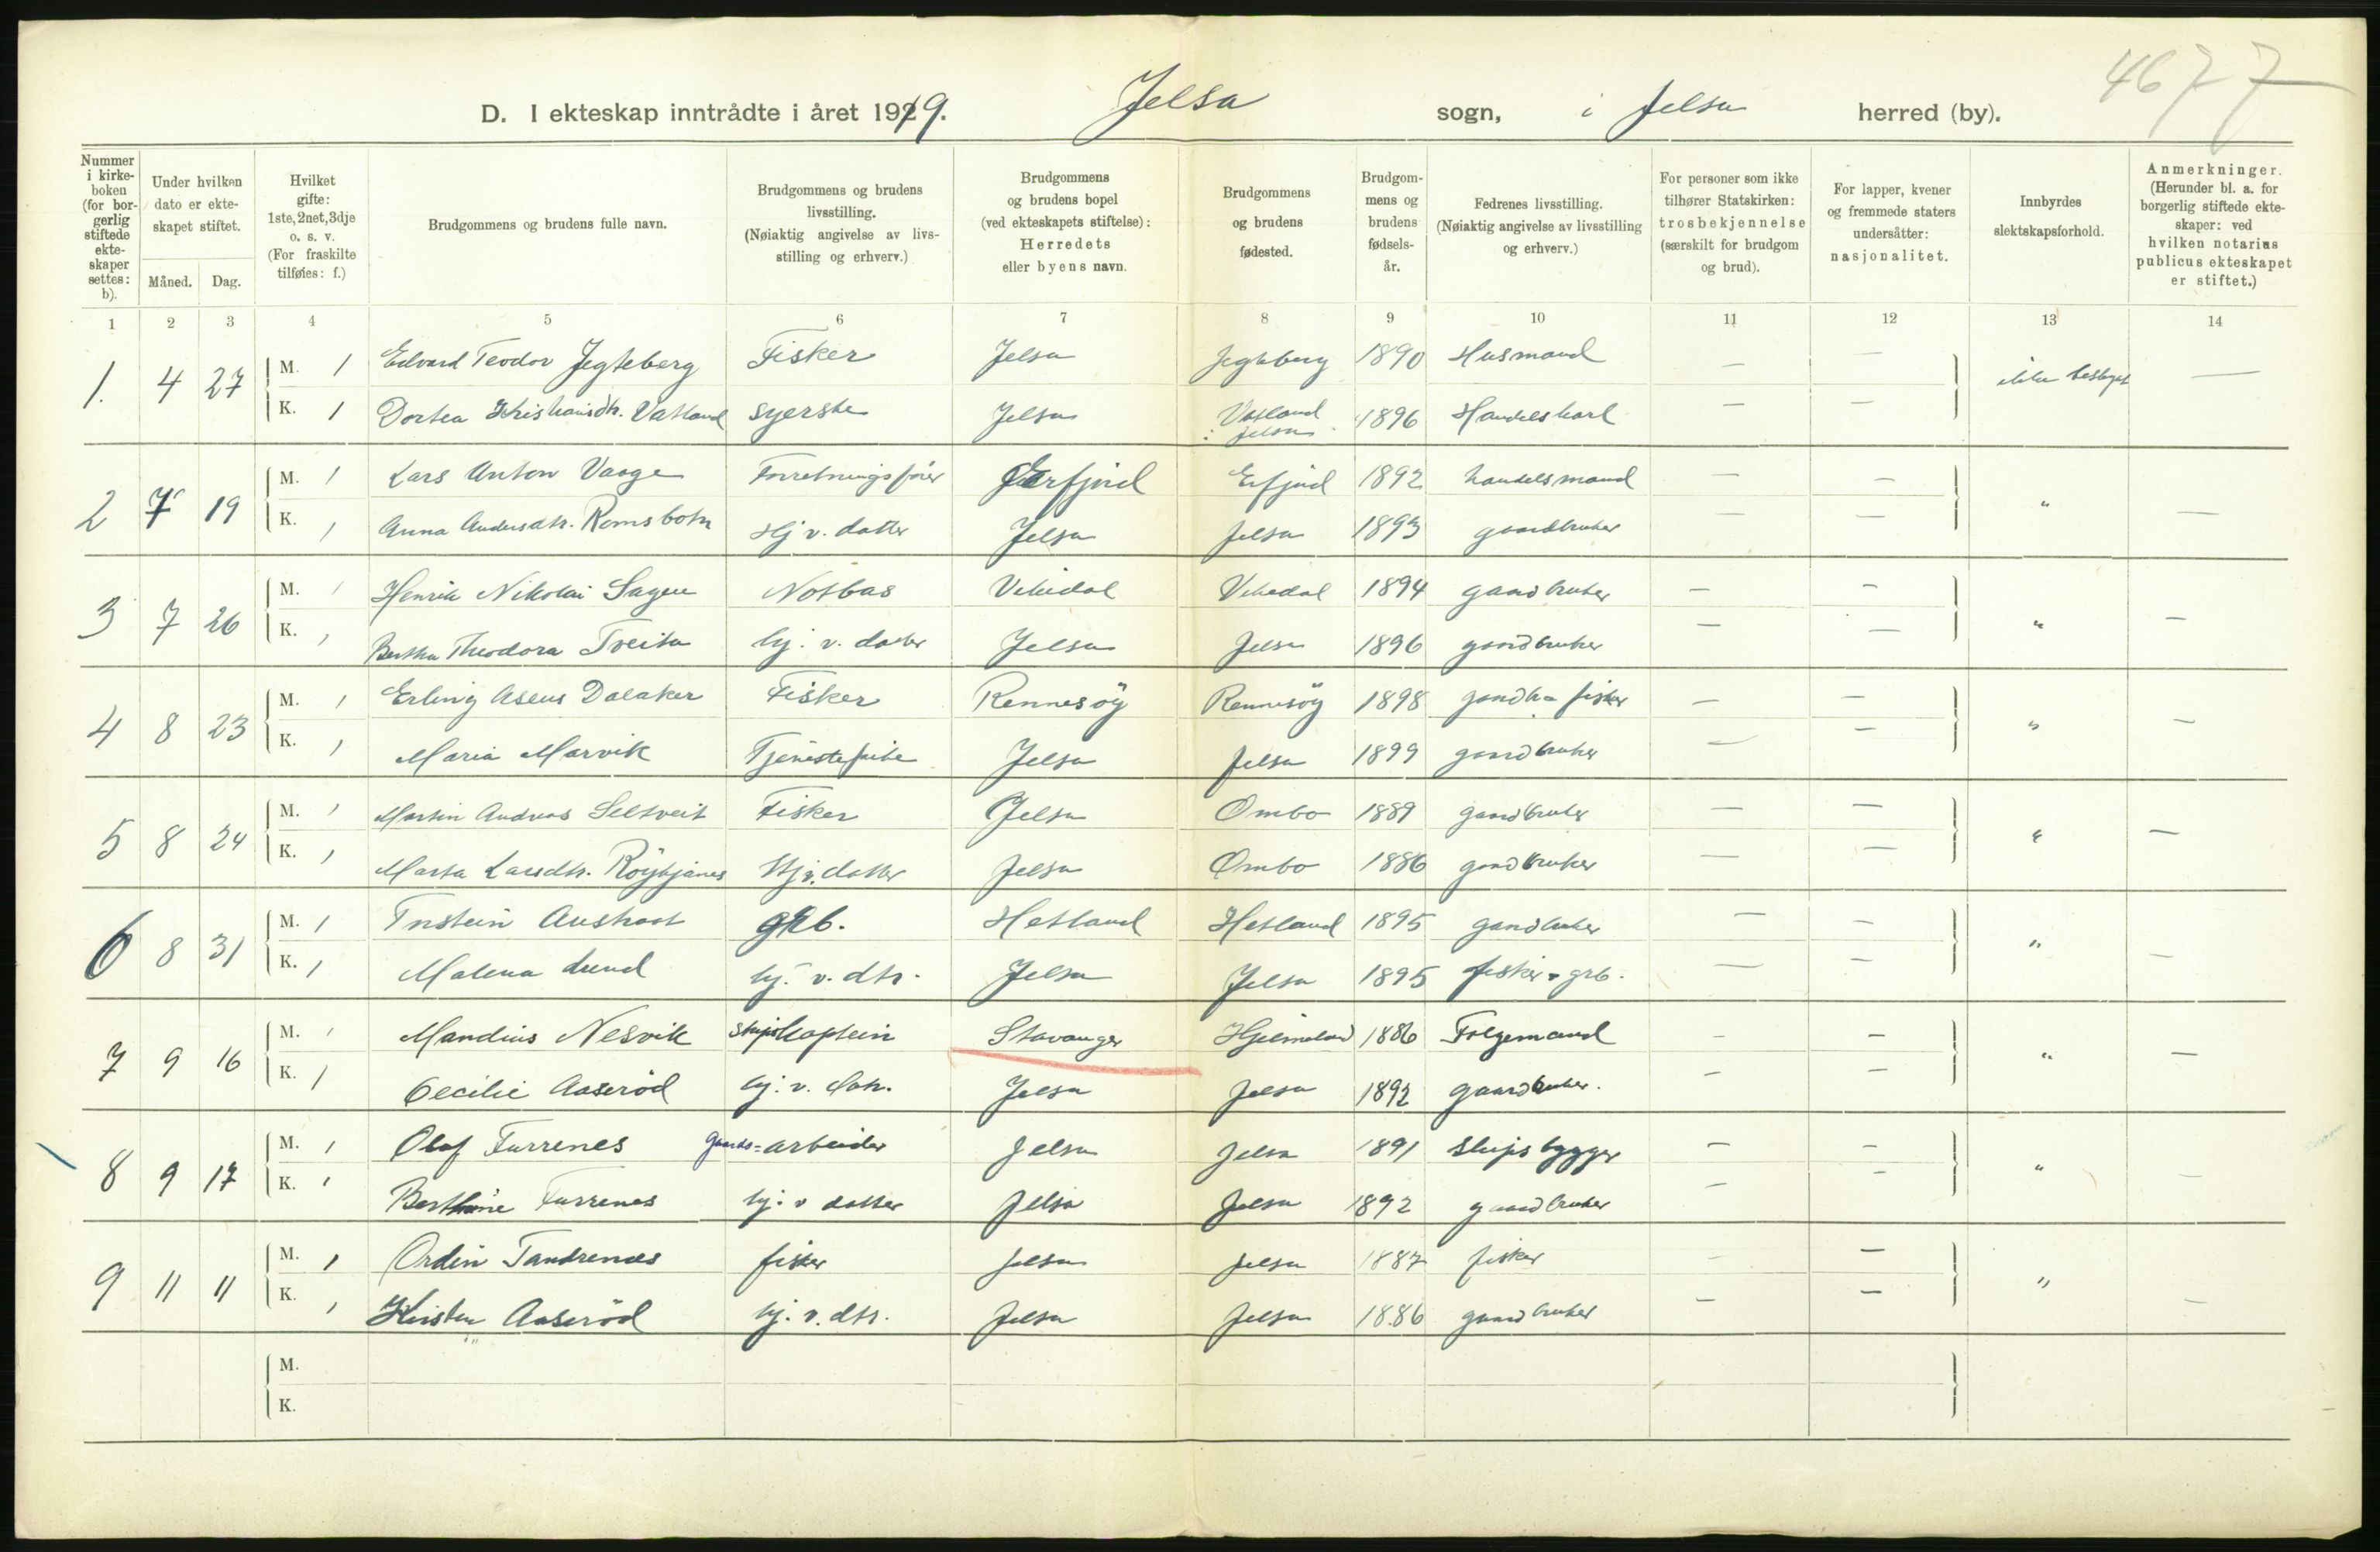 4677
D. I ekteskap inntrådte i året 1919. Jelsa sogn, i Jelsa herred (by).
Nummer i kirke-boken (for bor-gerlig stiftede ekte-skaper settes: b).
Under hvilken dato er ekte-skapet stiftet.
Måned. Dag.
Hvilket gifte: 1ste, 2net, 3dje o. s. v. (For fraskilte tilføies: f.)
Brudgommens og brudens fulle navn.
Brudgommens og brudens livsstilling. (Nøiaktig angivelse av livs-stilling og erhverv.)
Brudgommens og brudens bopel (ved ekteskapets stiftelse): Herredets eller byens navn.
Brudgommens og brudens fødested.
Brudgom-mens og brudens fødsels-år.
Fedrenes livsstilling. (Nøiaktig angivelse av livsstilling og erhverv.)
For personer som ikke tilhører Statskirken: trosbekjennelse (særskilt for brudgom og brud).
For lapper, kvener og fremmede staters undersåtter: nasjonalitet.
Innbyrdes slektskapsforhold.
Anmerkninger. (Herunder bl. a. for borgerlig stiftede ekte-skaper: ved hvilken notarius publicus ekteskapet er stiftet.)
1 2 3 4 5 6 7 8 9 10 11 12 13 14
1. 4 27 M. 1 Edvard Teodor Jegteberg Fisker Jelsa Jegteberg 1890 Husmand — — ikke —
K. 1 Dortea Kristiansdtr. Vatland syerske Jelsa Vatland i Jelsa 1896 Handelskarl — —
2 7 19 M. 1 Lars Anton Vaage Forretningsfører Erfjord Erfjord 1892 handelsmand — — " —
K. 1 Anna Andersdtr. Ramsbotn Hj v. datter Jelsa Jelsa 1893 gaardbruker — —
3 7 26 M. 1 Henrik Nikolai Sagen Notbas Vikedal Vikedal 1894 gaardbruker — — " —
K. 1 Bertha Theodora Tveita hj. v. datter Jelsa Jelsa 1896 gaardbruker — —
4 8 23 M. 1 Erling Aseus Dalaker Fisker Rennesöy Rennesöy 1898 gaardb= fisker — — " —
K. 1 Maria Marvik Tjenestepike Jelsa Jelsa 1899 gaardbruker — —
5 8 24 M. 1 Martin Andreas Seltveit Fisker Jelsa Ombo 1889 gaardbruker — — " —
K. 1 Marta Larsdtr. Röykjanes Hj v. datter Jelsa Ombo 1886 gaardbruker — —
6 8 31 M. 1 Austraat grb. Hetland Hetland 1895 gaardbruker — — " —
K. 1 Malena Lund hj. v. dtr. Jelsa Jelsa 1895 fisker = grb. — —
7 9 16 M. 1 Mandius Nesvik Skipskaptein Stavanger Hjelmeland 1886 Folgemand — — " —
K. 1 Cecilie Aaseröd hj. v. dtr. Jelsa Jelsa 1892 gaardbruker. — —
8 9 17 M. 1 Olaf Furrenes gaards=arbeider Jelsa Jelsa 1891 skipsbygger — — " —
K. 1 Berthine Furrenes hj. v datter Jelsa Jelsa 1892 gaardbruker — —
9 11 11 M. 1 Ordin Tandrenes fisker Jelsa Jelsa 1887 fisker — — " —
K. 1 Kirsten Aaseröd hj. v. dtr. Jelsa Jelsa 1886 gaardbruker — —
M.
K.